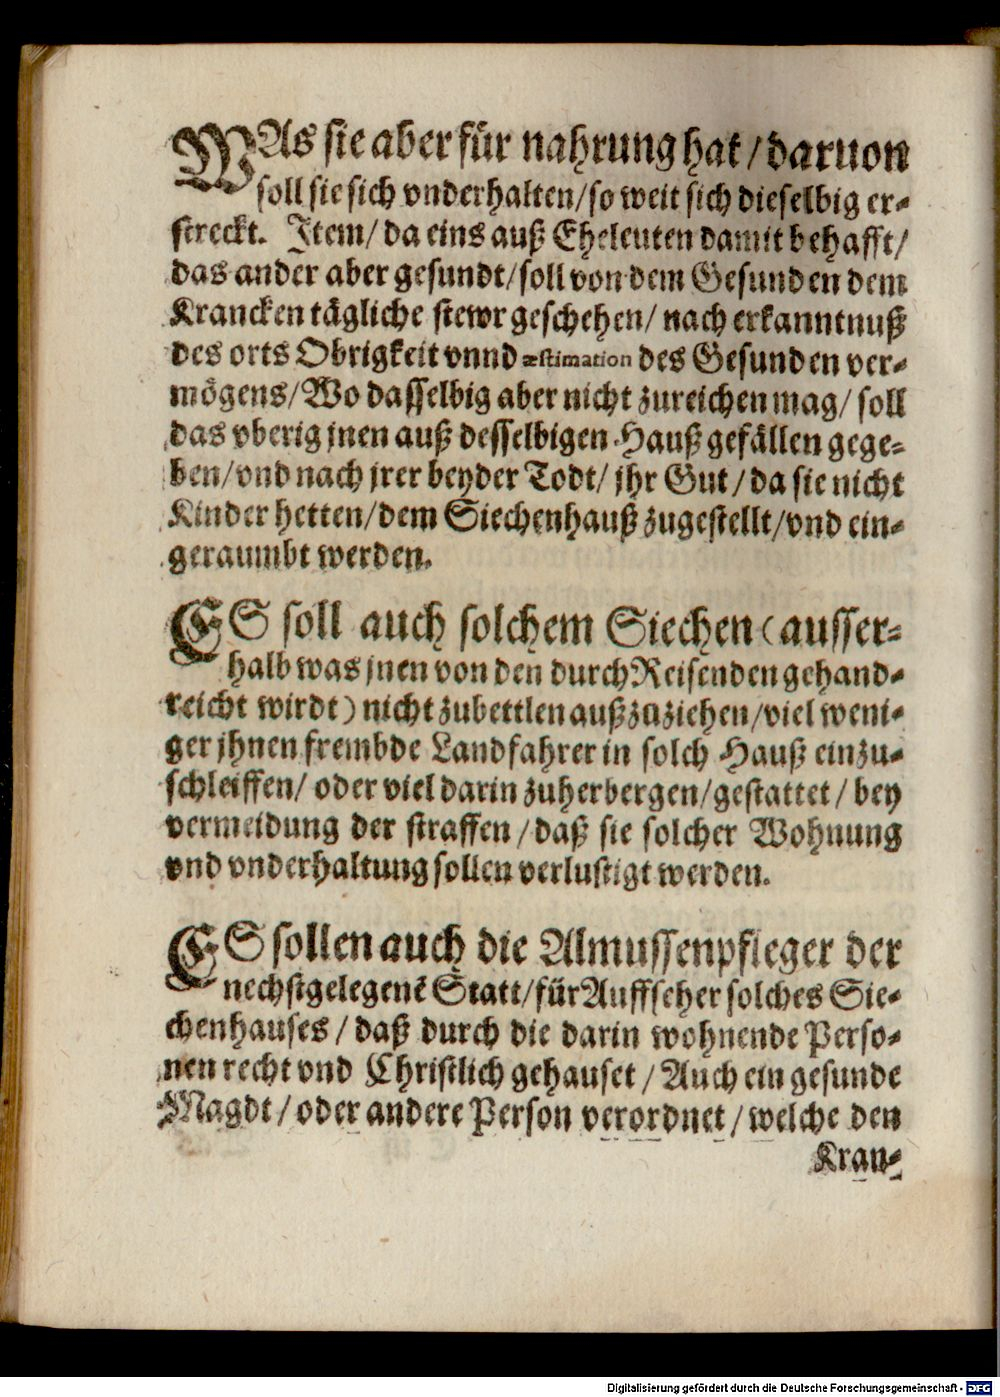 WAs sie aber für nahrung hat / daruon
soll sie sich vnderhalten / so weit sich dieselbig er⸗
streckt. Item / da eins auß Eheleuten damit behafft /
das ander aber gesundt / soll von dem Gesunden dem
Krancken tägliche stewr geschehen / nach erkanntnuß
des orts Obrigkeit vnnd æstimation des Gesunden ver⸗
mögens / Wo dasselbig aber nicht zureichen mag / soll
das vberig jnen auß desselbigen Hauß gefällen gege⸗
ben / vnd nach jrer beyder Todt / jhr Gut / da sie nicht
Kinder hetten / dem Siechenhauß zugestellt / vnd ein⸗
geraumbt werden.
ES soll auch solchem Siechen (ausser⸗
halb was jnen von den durch Reisenden gehand⸗
reicht wirdt) nicht zubettlen außzuziehen / viel weni⸗
ger jhnen frembde Landfahrer in solch Hauß einzu⸗
schleiffen / oder viel darin zuherbergen / gestattet / bey
vermeidung der straffen / daß sie solcher Wohnung
vnd vnderhaltung sollen verlustigt werden.
ES sollen auch die Almussenpfleger der
nechstgelegenẽ Statt / für Auffseher solches Sie⸗
chenhauses / daß durch die darin wohnende Perso⸗
nen recht vnd Christlich gehauset / Auch ein gesunde
Magdt / oder andere Person verordnet / welche den
Kran⸗
Digitalisierung gefördert durch die Deutsche Forschungsgemeinschaft - DFG